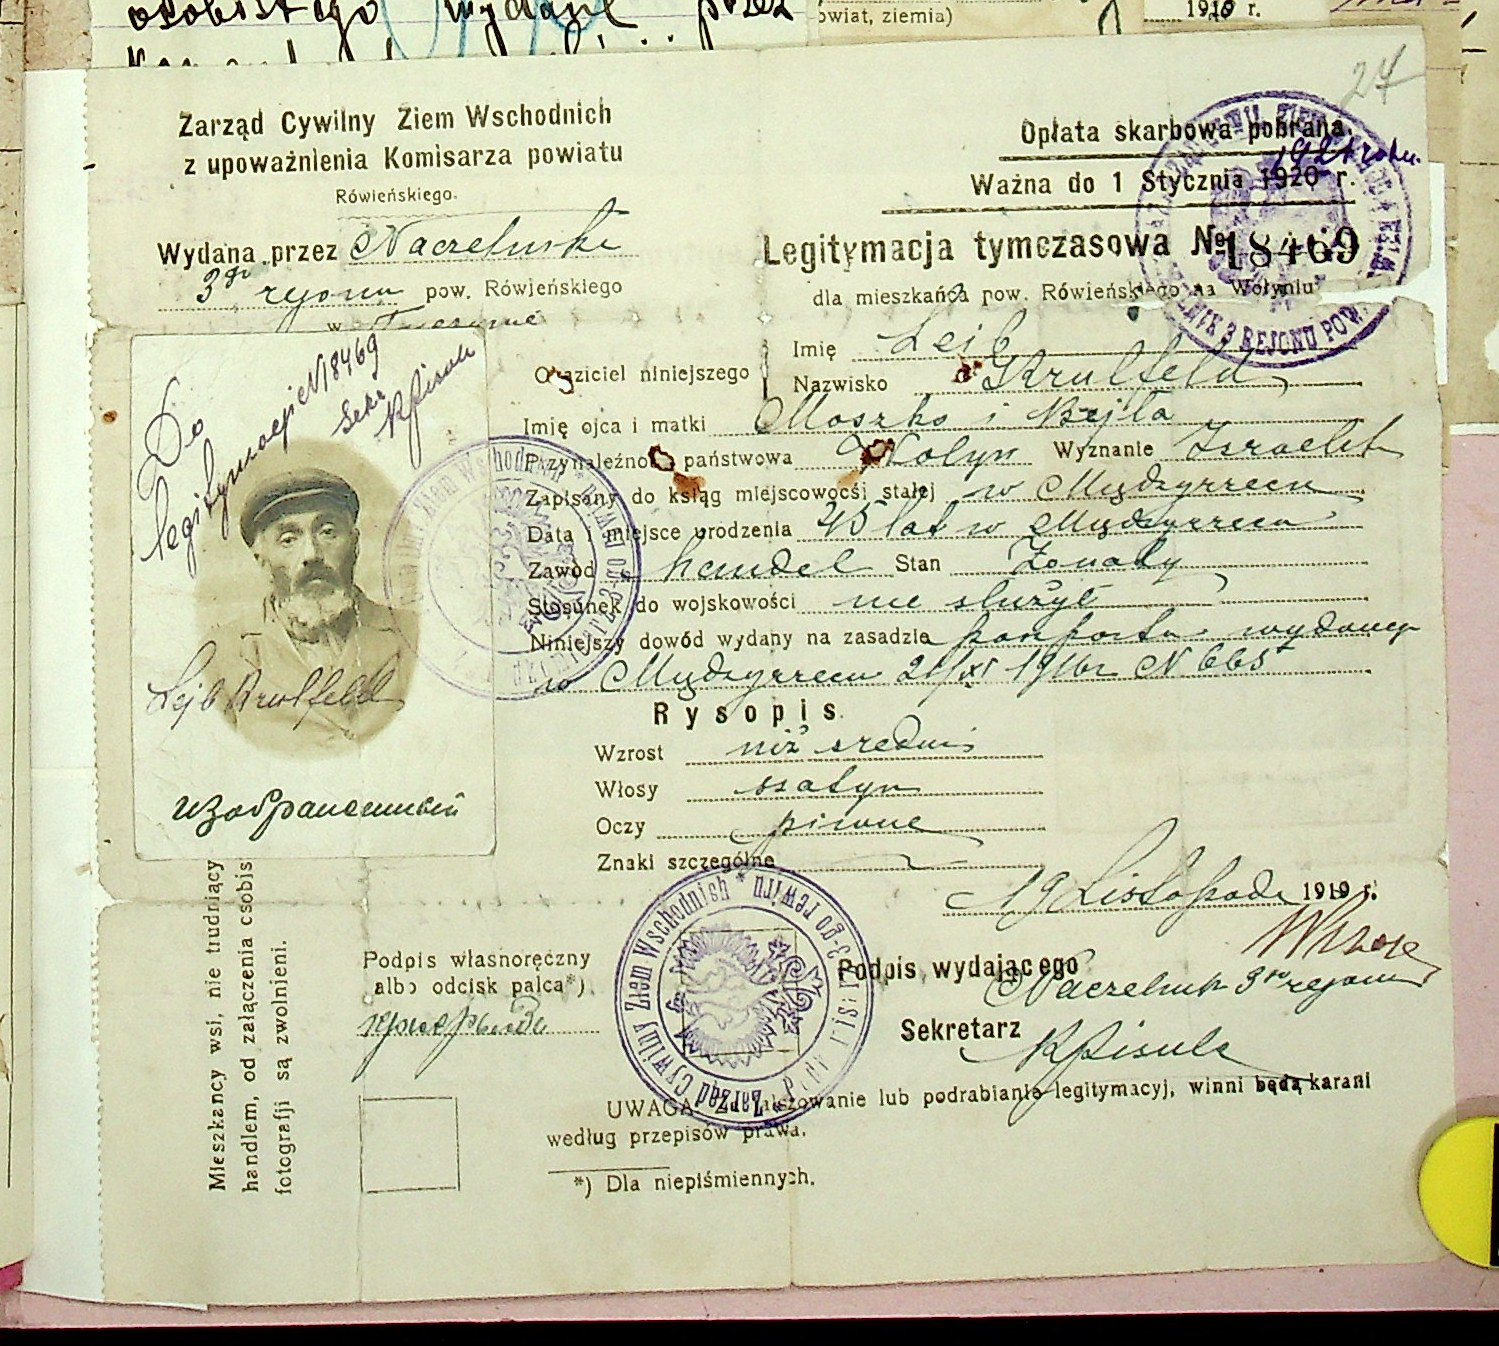 osobistego wydane przez
owiat, ziemia)
1919 r.
27
Zarząd Cywilny Ziem Wschodnich
z upoważnienia Komisarza powiatu
Rówieńskiego.
Wydana przez Naczelnika
3go rejonu pow. Rówieńskiego
w Tuczynie
Opłata skarbowa pobrana.
1921 roku.
Ważna do 1 Stycznia 1920 r.
Legitymacja tymczasowa № 18469
dla mieszkańca pow. Rówieńskiego na Wołyniu
Okaziciel niniejszego
Imię Lejb
Nazwisko Krulfeld
Imię ojca i matki Moszko i Bejla
Przynależność państwowa Wołyn Wyznanie Izraelit
Zapisany do ksiąg miejscowości stałej w Międzyrzecu
Data i miejsce urodzenia 45 lat w Międzyrzecu
Zawód handel Stan Żonaty
Stosunek do wojskowości nie służył
Niniejszy dowód wydany na zasadzie pasportu wydanego
w Międzyrzecu 21/XI 1916r N 665
Rysopis.
Wzrost niż średni
Włosy szatyn
Oczy piwne
Znaki szczególne
19 Listopada 1919 r.
Do
legitymacji N 18469
Sekr
KPisula
Lejb Krulfeld
Mieszkańcy wsi, nie trudniący
handlem, od załączenia osobis
fotografji są zwolnieni.
Podpis własnoręczny
albo odcisk palca*)
Podpis wydającego
Naczelnik 3go rejonu
Sekretarz
KPisula
UWAGA. Za fałszowanie lub podrabianie legitymacyj, winni będą karani
według przepisów prawa.
*) Dla niepiśmiennych.
Zarząd Cywilny Ziem Wschodnich * 3-go rewiru